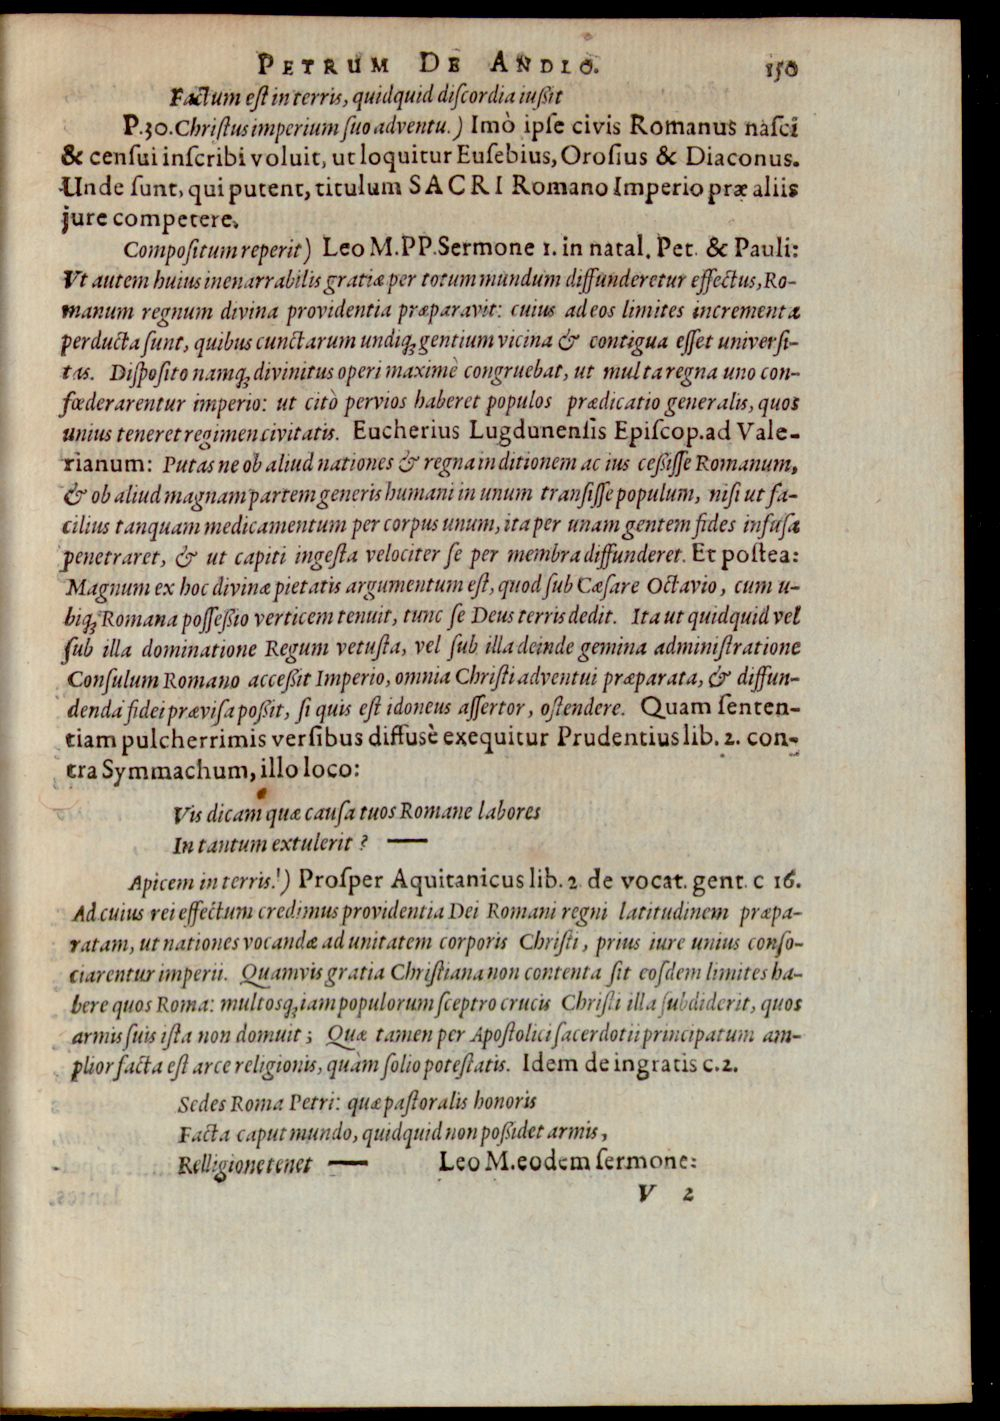 PETRUM DE ANDLO. 150
Factum est in terris, quidquid discordia iußit
P.30. Christus imperium suo adventu.) Imò ipse civis Romanus nasci
& censui inscribi voluit, ut loquitur Eusebius, Orosius & Diaconus.
Unde sunt, qui putent, titulum SACRI Romano Imperio præ aliis
jure competere.
Compositum reperit) Leo M.PP. Sermone 1. in natal. Pet. & Pauli:
Vt autem huius inenarrabilis gratiæ per totum mundum diffunderetur effectus, Ro-
manum regnum divina providentia præparavit: cuius ad eos limites incrementa
perducta sunt, quibus cunctarum undiq; gentium vicina & contigua esset universi-
tas. Disposito namq; divinitus operi maximè congruebat, ut multa regna uno con-
fœderarentur imperio: ut citò pervios haberet populos prædicatio generalis, quos
unius teneret regimen civitatis. Eucherius Lugdunensis Episcop. ad Vale-
rianum: Putas ne ob aliud nationes & regna in ditionem ac ius ceßisse Romanum,
& ob aliud magnam partem generis humani in unum transisse populum, nisi ut fa-
cilius tanquam medicamentum per corpus unum, ita per unam gentem fides infusa
penetraret, & ut capiti ingesta velociter se per membra diffunderet. Et postea:
Magnum ex hoc divinæ pietatis argumentum est, quod sub Cæsare Octavio, cum u-
biq; Romana posseßio verticem tenuit, tunc se Deus terris dedit. Ita ut quidquid vel
sub illa dominatione Regum vetusta, vel sub illa deinde gemina administratione
Consulum Romano acceßit Imperio, omnia Christi adventui præparata, & diffun-
denda fidei prævisa poßit, si quis est idoneus assertor, ostendere. Quam senten-
tiam pulcherrimis versibus diffusè exequitur Prudentius lib. 2. con-
tra Symmachum, illo loco:
Vis dicam quæ causa tuos Romane labores
In tantum extulerit? —
Apicem in terris.) Prosper Aquitanicus lib. 2 de vocat. gent. c 16.
Ad cuius rei effectum credimus providentia Dei Romani regni latitudinem præpa-
ratam, ut nationes vocandæ ad unitatem corporis Christi, prius iure unius conso-
ciarentur imperii. Quamvis gratia Christiana non contenta sit eosdem limites ha-
bere quos Roma: multosq; iam populorum sceptro crucis Christi illa subdiderit, quos
armis suis ista non domuit; Quæ tamen per Apostolici sacerdotii principatum am-
plior facta est arce religionis, quàm solio potestatis. Idem de ingratis c. 2.
Sedes Roma Petri: quæ pastoralis honoris
Facta caput mundo, quidquid non poßidet armis,
Relligione tenet — Leo M. eodem sermone:
V 2